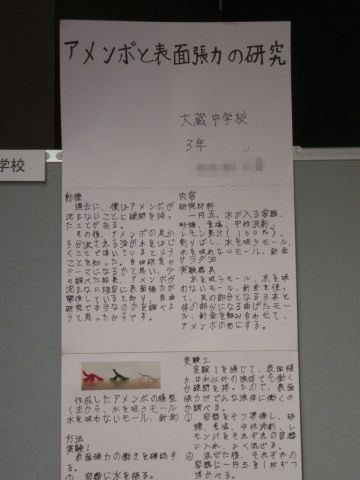 アメンボと表面張力の研究
大蔵中学校
3年
学校
動機
過去に、僕はアメンボが
沈まないことに疑問を持っ
たことがある。
その後、アメンボの足か
ら分泌される油が水をはじ
くことで浮いているという
ことを知った。自由研究の
テーマになるかと思い、少
々調べた結果、アメンボが
沈まない理由に表面張力が
関係していると知り、自由
研究で本当なのかを調べよ
うと思ったからです。
内容
研究材料
一円玉、水が入る容器、
砂糖、食塩、中性洗剤、
レモン果汁(100%)、
割りばし、水を吸うモール、
水を吸わないモール、針金
サラダ油
実験器具
水を吸うモール、水を吸
わないモール、針金を使っ
て、足の部分となる3本と
体の部分になる曲げたモー
ル、針金を組み合わせて、
アメンボの形にする。
作成したアメンボの模型
(左から、水を吸うモール
水を吸わないモール、針金)
方法
実験1
表面張力の働きを確認す
る。
① 容器に水を張る。
実験2
実験1を通じて、表面張
力は水以外の液体でも働く
か疑問を持ったので、表面
張力がどんな液体に働くの
か調べる。
① 容器を4つ準備し、砂
糖、食塩、中性洗剤、レ
モン汁をそれぞれの容器
に入れ、よく混ぜる。
② 混ぜた後、それぞれの
容器に一円玉を1枚ずつ
浮かべる。